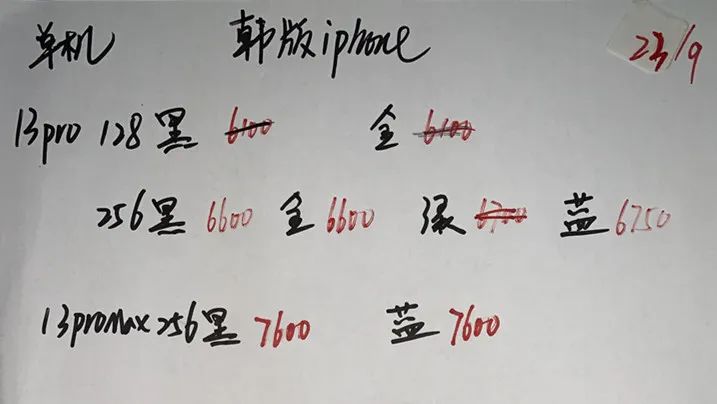 单机 韩版iphone 23/9
13pro 128黑 6100 金 6100
256黑 6600 金 6600 绿 6700 蓝 6750
13promax 256黑 7600 蓝 7600